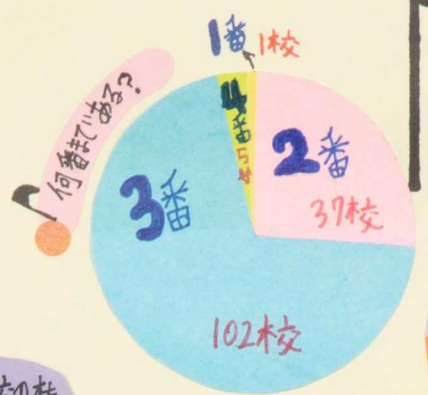 何番まである?
1番 1校
4番
5校
2番
37校
3番
102校